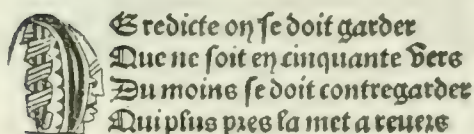 DE redicte on ſe doit garder
Que ne ſoit en cinquante vers
Du moins ſe doit contregarder
Qui plus pres la met a reuers